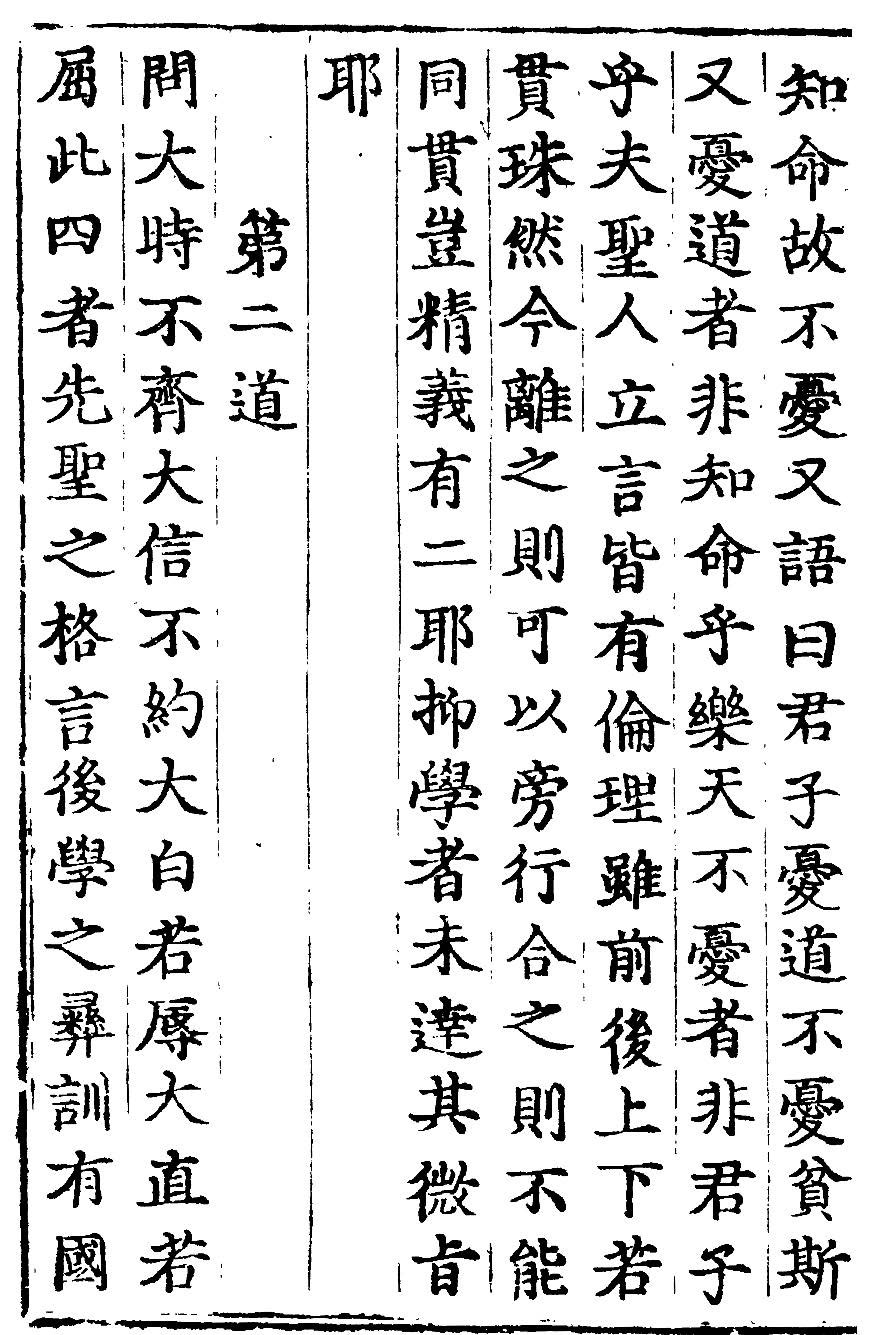 知命故不憂又語曰君子憂道不憂貧斯
又憂道者非知命乎樂天不憂者非君子
乎夫聖人立言皆有倫理雖前後上下若
貫珠然今離之則可以旁行合之則不能
同貫豈精義有二耶抑學者未達其微旨
耶
第二道
問大時不齊大信不約大白若辱大直若
屈此四者先聖之格言後學之彝訓有國